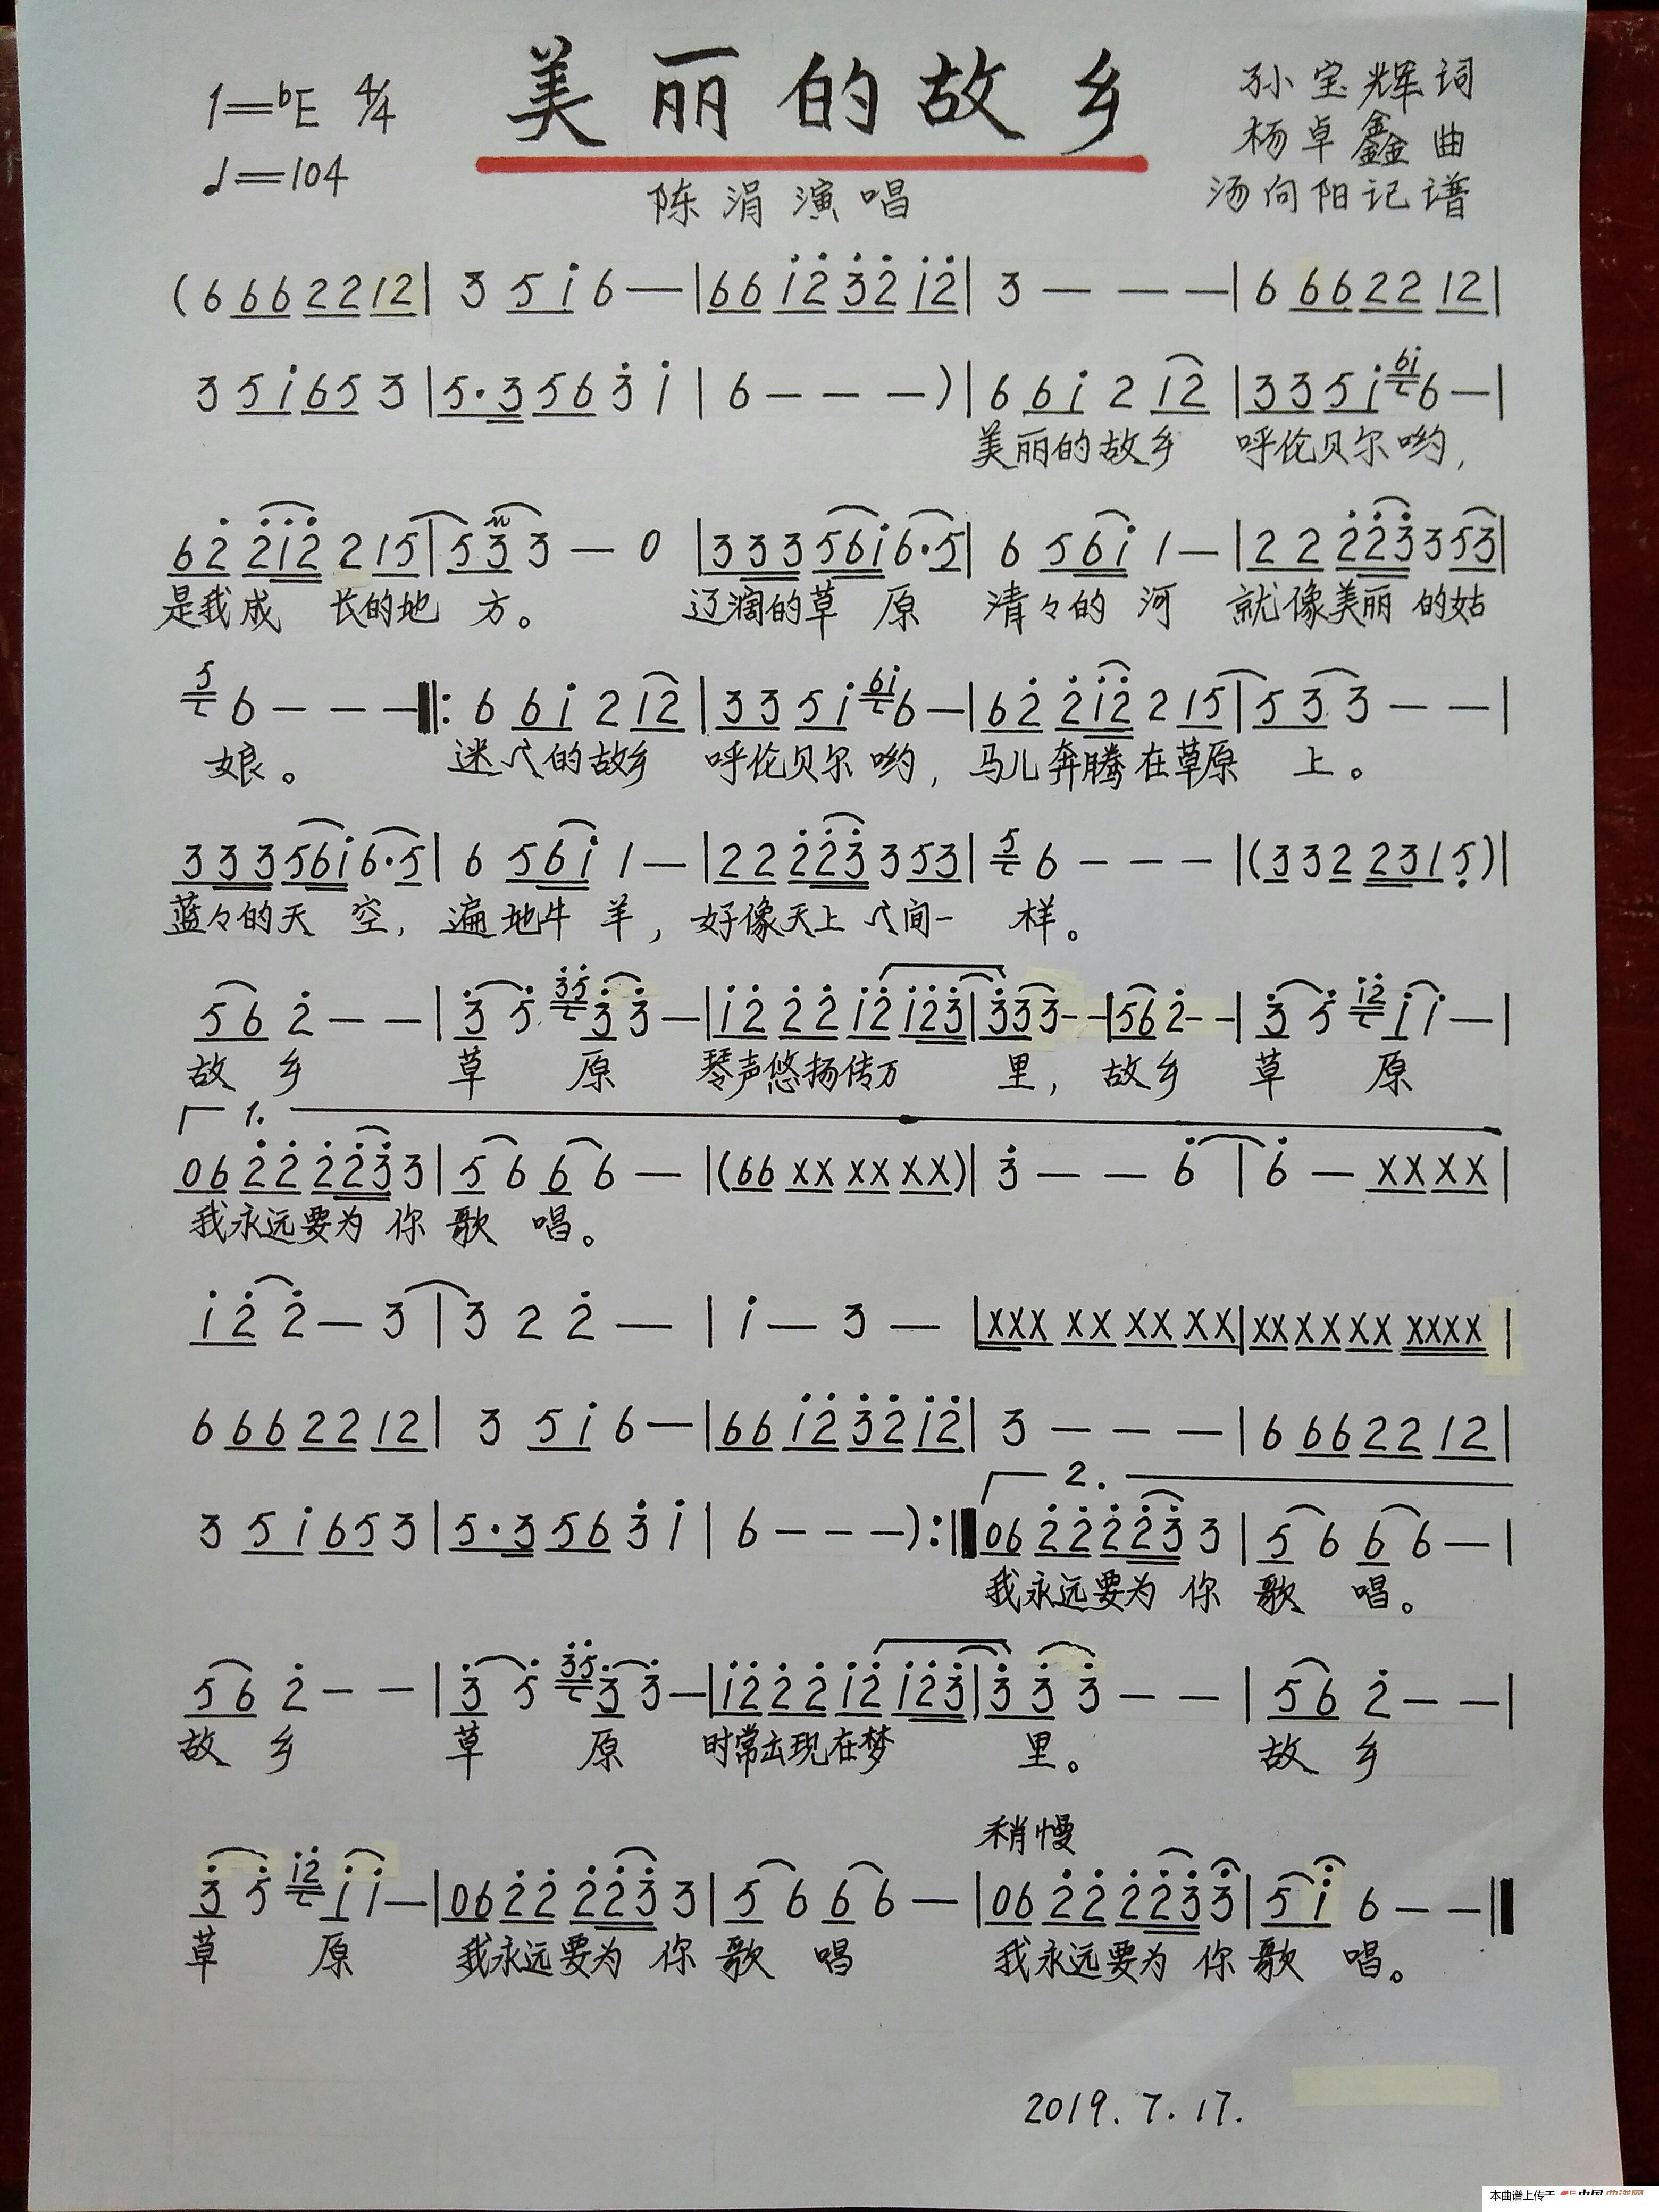 1=♭E 4/4 美丽的故乡 孙宝辉词
♩=104 杨卓鑫曲
陈涓演唱 汤向阳记谱
(6 6 6 2 2 1 2 | 3 5 i 6 — | 6 6 i 2̇ 3̇ 2̇ i 2̇ | 3 — — — | 6 6 6 2 2 1 2 |
3 5 i 6 5 3 | 5· 3 5 6 3̇ i | 6 — — — ) | 6 6 i 2 1 2 | 3 3 5 i 6i 6 — |
美丽的故乡 呼伦贝尔哟,
6 2̇ 2̇ i 2̇ 2 1 5 | 5 3 3 — 0 | 3 3 3 5 6 i 6· 5 | 6 5 6 i 1 — | 2 2 2̇ 2̇ 3̇ 3 5 3 |
是我成 长的地 方。 辽阔的草 原 清々的 河 就像美丽 的姑
5 6 — — — ‖: 6 6 i 2 1 2 | 3 3 5 i 6i 6 — | 6 2̇ 2̇ i 2̇ 2 1 5 | 5 3 3 — — |
娘。 迷人的故乡 呼伦贝尔 哟, 马儿奔腾在草原 上。
3 3 3 5 6 i 6· 5 | 6 5 6 i 1 — | 2 2 2̇ 2̇ 3̇ 3 5 3 | 5 6 — — — | (3 3 2 2 3 1 5̣) |
蓝々的天 空, 遍地牛 羊, 好像天上 人间一 样。
5 6 2̇ — — | 3̇ 5̇ 3̇5̇ 3̇ 3̇ — | i 2̇ 2̇ 2̇ i 2̇ i 2̇ 3̇ | 3̇ 3̇ 3̇ — — | 5 6 2̇ — — | 3̇ 5̇ i2̇ i i — |
故 乡 草 原 琴声悠扬传万 里, 故乡 草 原
1.
0 6 2̇ 2̇ 2̇ 2̇ 3̇ 3 | 5 6 6 6 — | (6 6 X X X X X X) | 3̇ — — 6̇ | 6̇ — X X X X |
我永远要为 你 歌 唱。
i 2̇ 2̇ — 3 | 3 2 2̇ — | i — 3 — | X X X X X X X X X | X X X X X X X X X X |
6 6 6 2 2 1 2 | 3 5 i 6 — | 6 6 i 2̇ 3̇ 2̇ i 2̇ | 3 — — — | 6 6 6 2 2 1 2 |
2.
3 5 i 6 5 3 | 5· 3 5 6 3̇ i | 6 — — — ) :‖ 0 6 2̇ 2̇ 2̇ 2̇ 3̇ 3 | 5 6 6 6 — |
我永远要为 你 歌 唱。
5 6 2̇ — — | 3̇ 5̇ 3̇5̇ 3̇ 3̇ — | i 2̇ 2̇ 2̇ i 2̇ i 2̇ 3̇ | 3̇ 3̇ 3̇ — — | 5 6 2̇ — — |
故 乡 草 原 时常出现在梦 里。 故 乡
稍慢
3̇ 5̇ i2̇ i i — | 0 6 2̇ 2̇ 2̇ 2̇ 3̇ 3 | 5 6 6 6 — | 0 6 2̇ 2̇ 2̇ 2̇ 3̇ 3̇ | 5 i 6 — — ‖
草 原 我永远要为 你 歌 唱 我永远要为 你 歌 唱。
2019. 7. 17.
本曲谱上传于